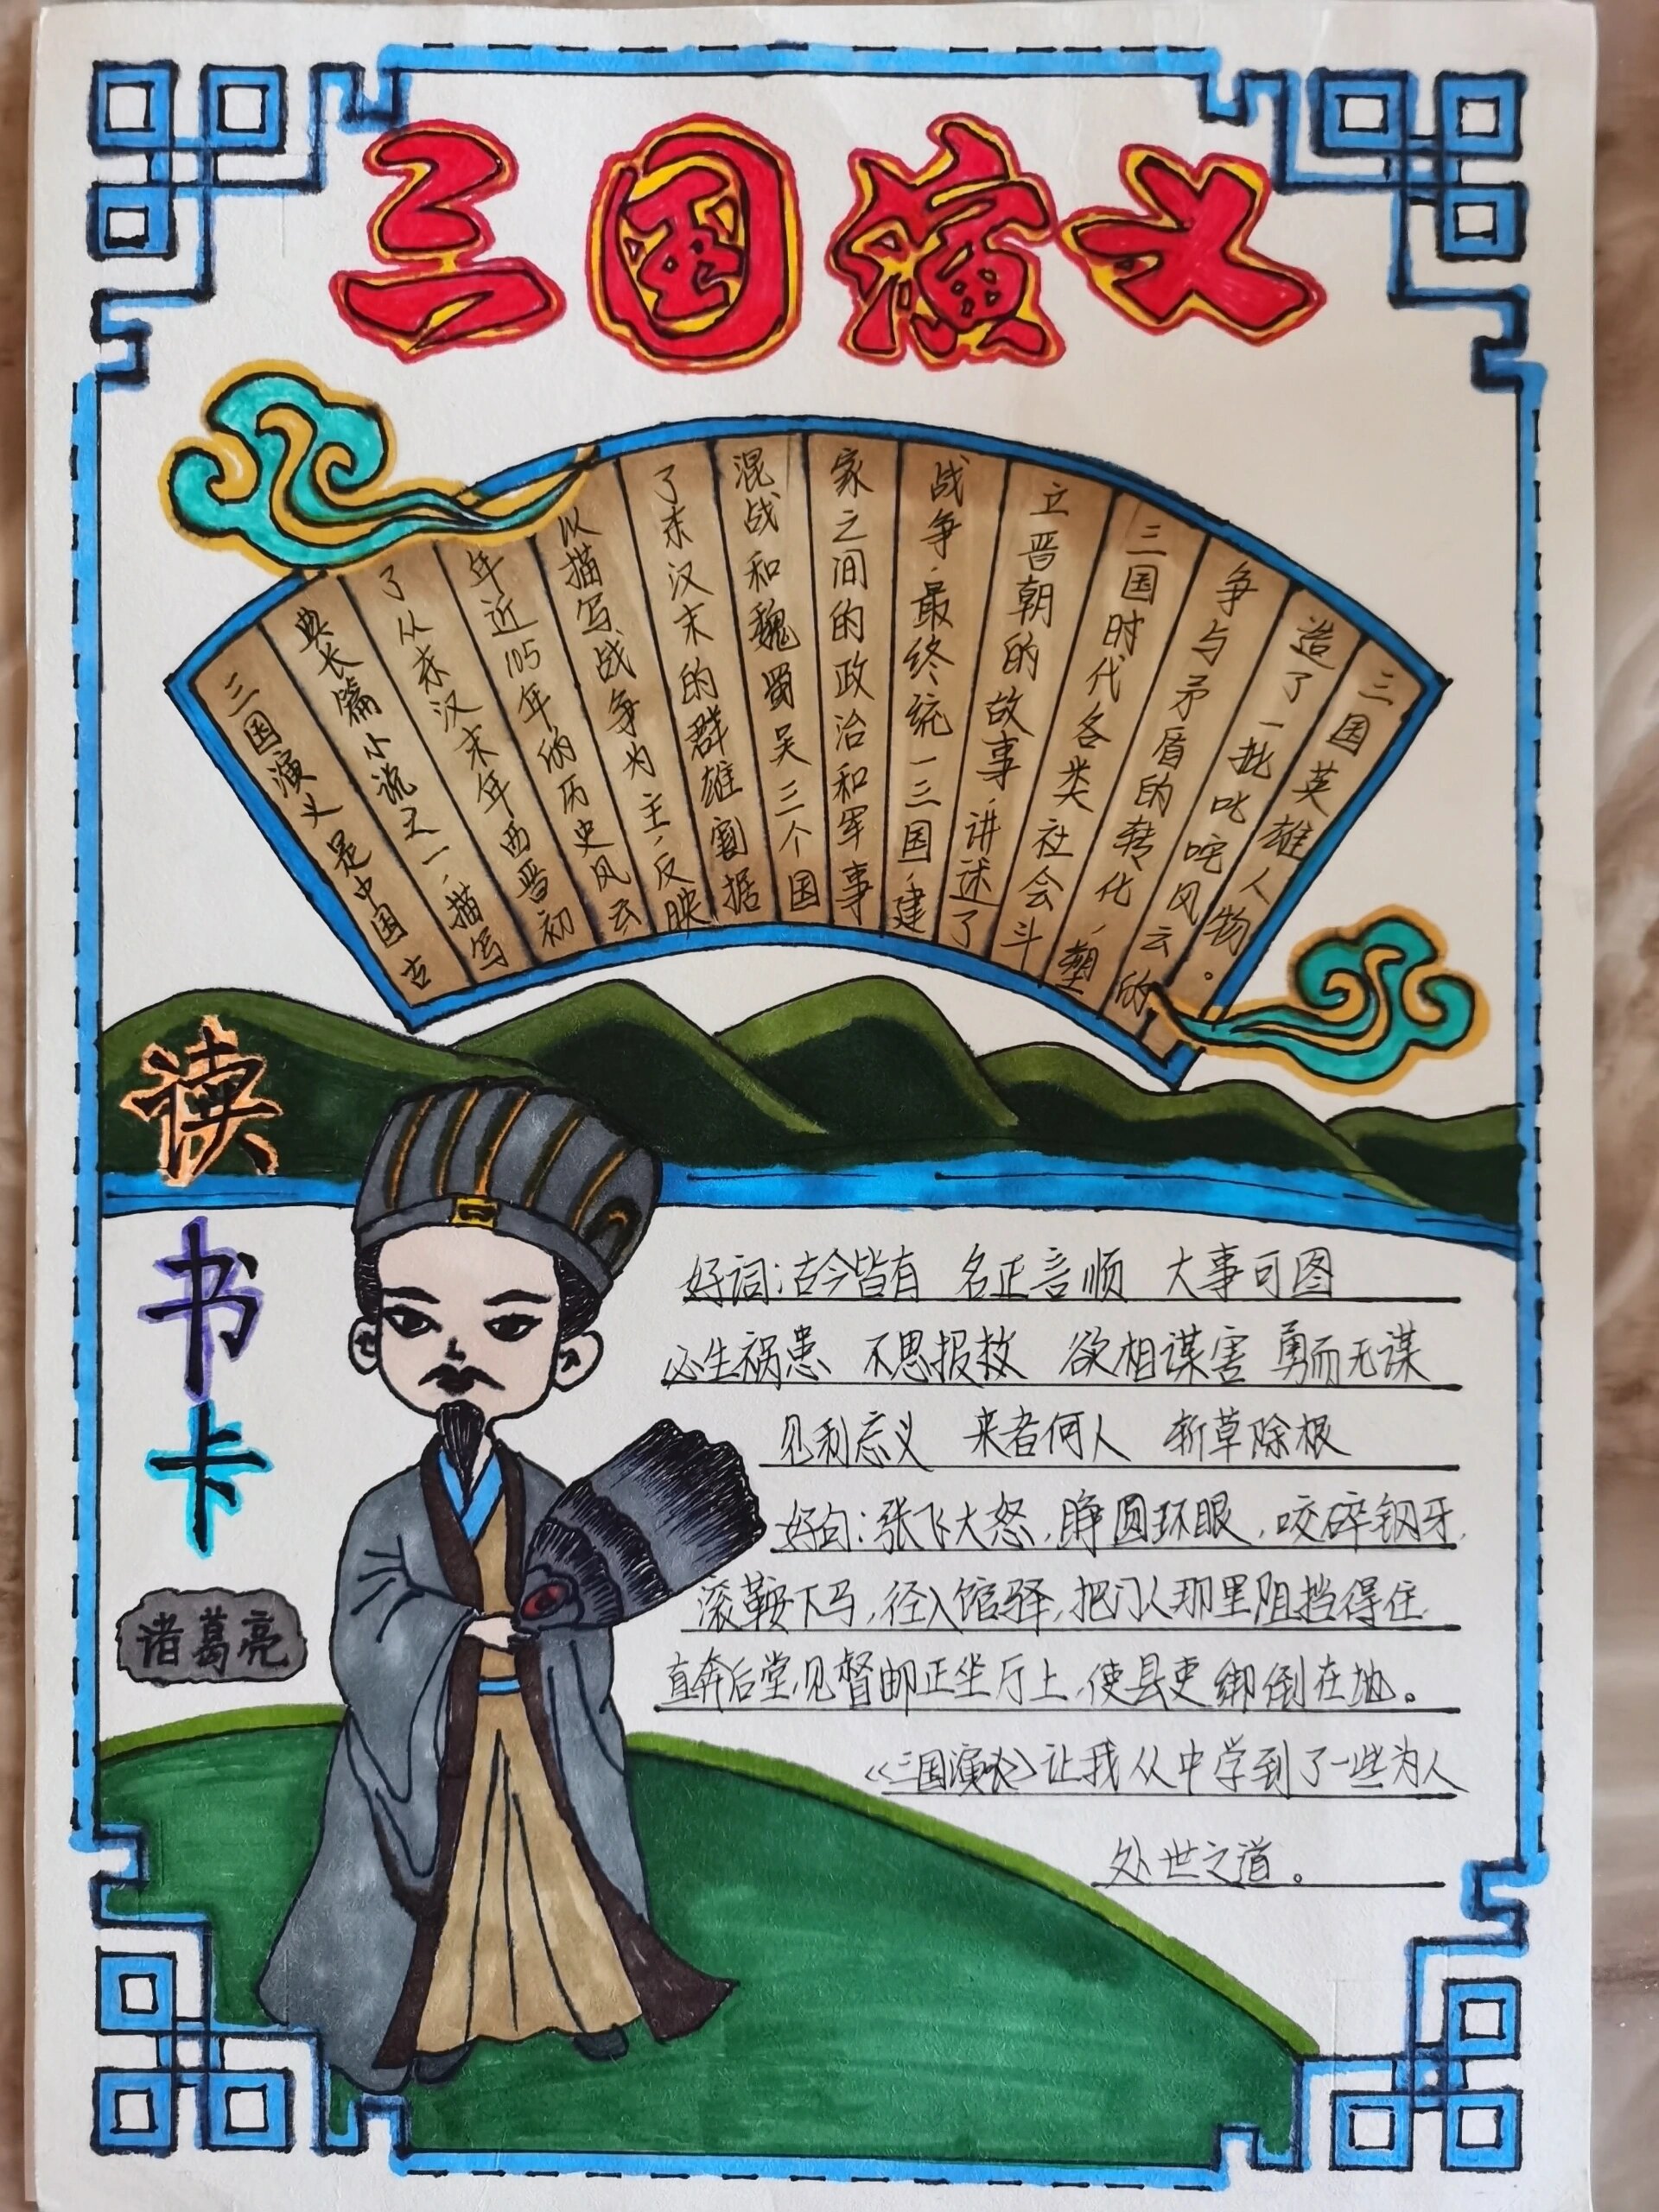 三国演义
三国演义是中国古
典长篇小说之一,描写
了从东汉末年西晋初
年近105年的历史风云
以描写战争为主,反映
了东汉末的群雄割据
混战和魏蜀吴三个国
家之间的政治和军事
战争,最终统一三国,建
立晋朝的故事,讲述了
三国时代各类社会斗
争与矛盾的转化,塑
造了一批叱咤风云的
三国英雄人物。
读
书
卡
诸葛亮
好词:古今皆有 名正言顺 大事可图
必生祸患 不思报救 欲相谋害 勇而无谋
见利忘义 来者何人 斩草除根
好句:张飞大怒,睁圆环眼,咬碎钢牙,
滚鞍下马,径入馆驿,把门人那里阻挡得住,
直奔后堂,见督邮正坐厅上,使县吏绑倒在地。
《三国演义》让我从中学到了一些为人
处世之道。